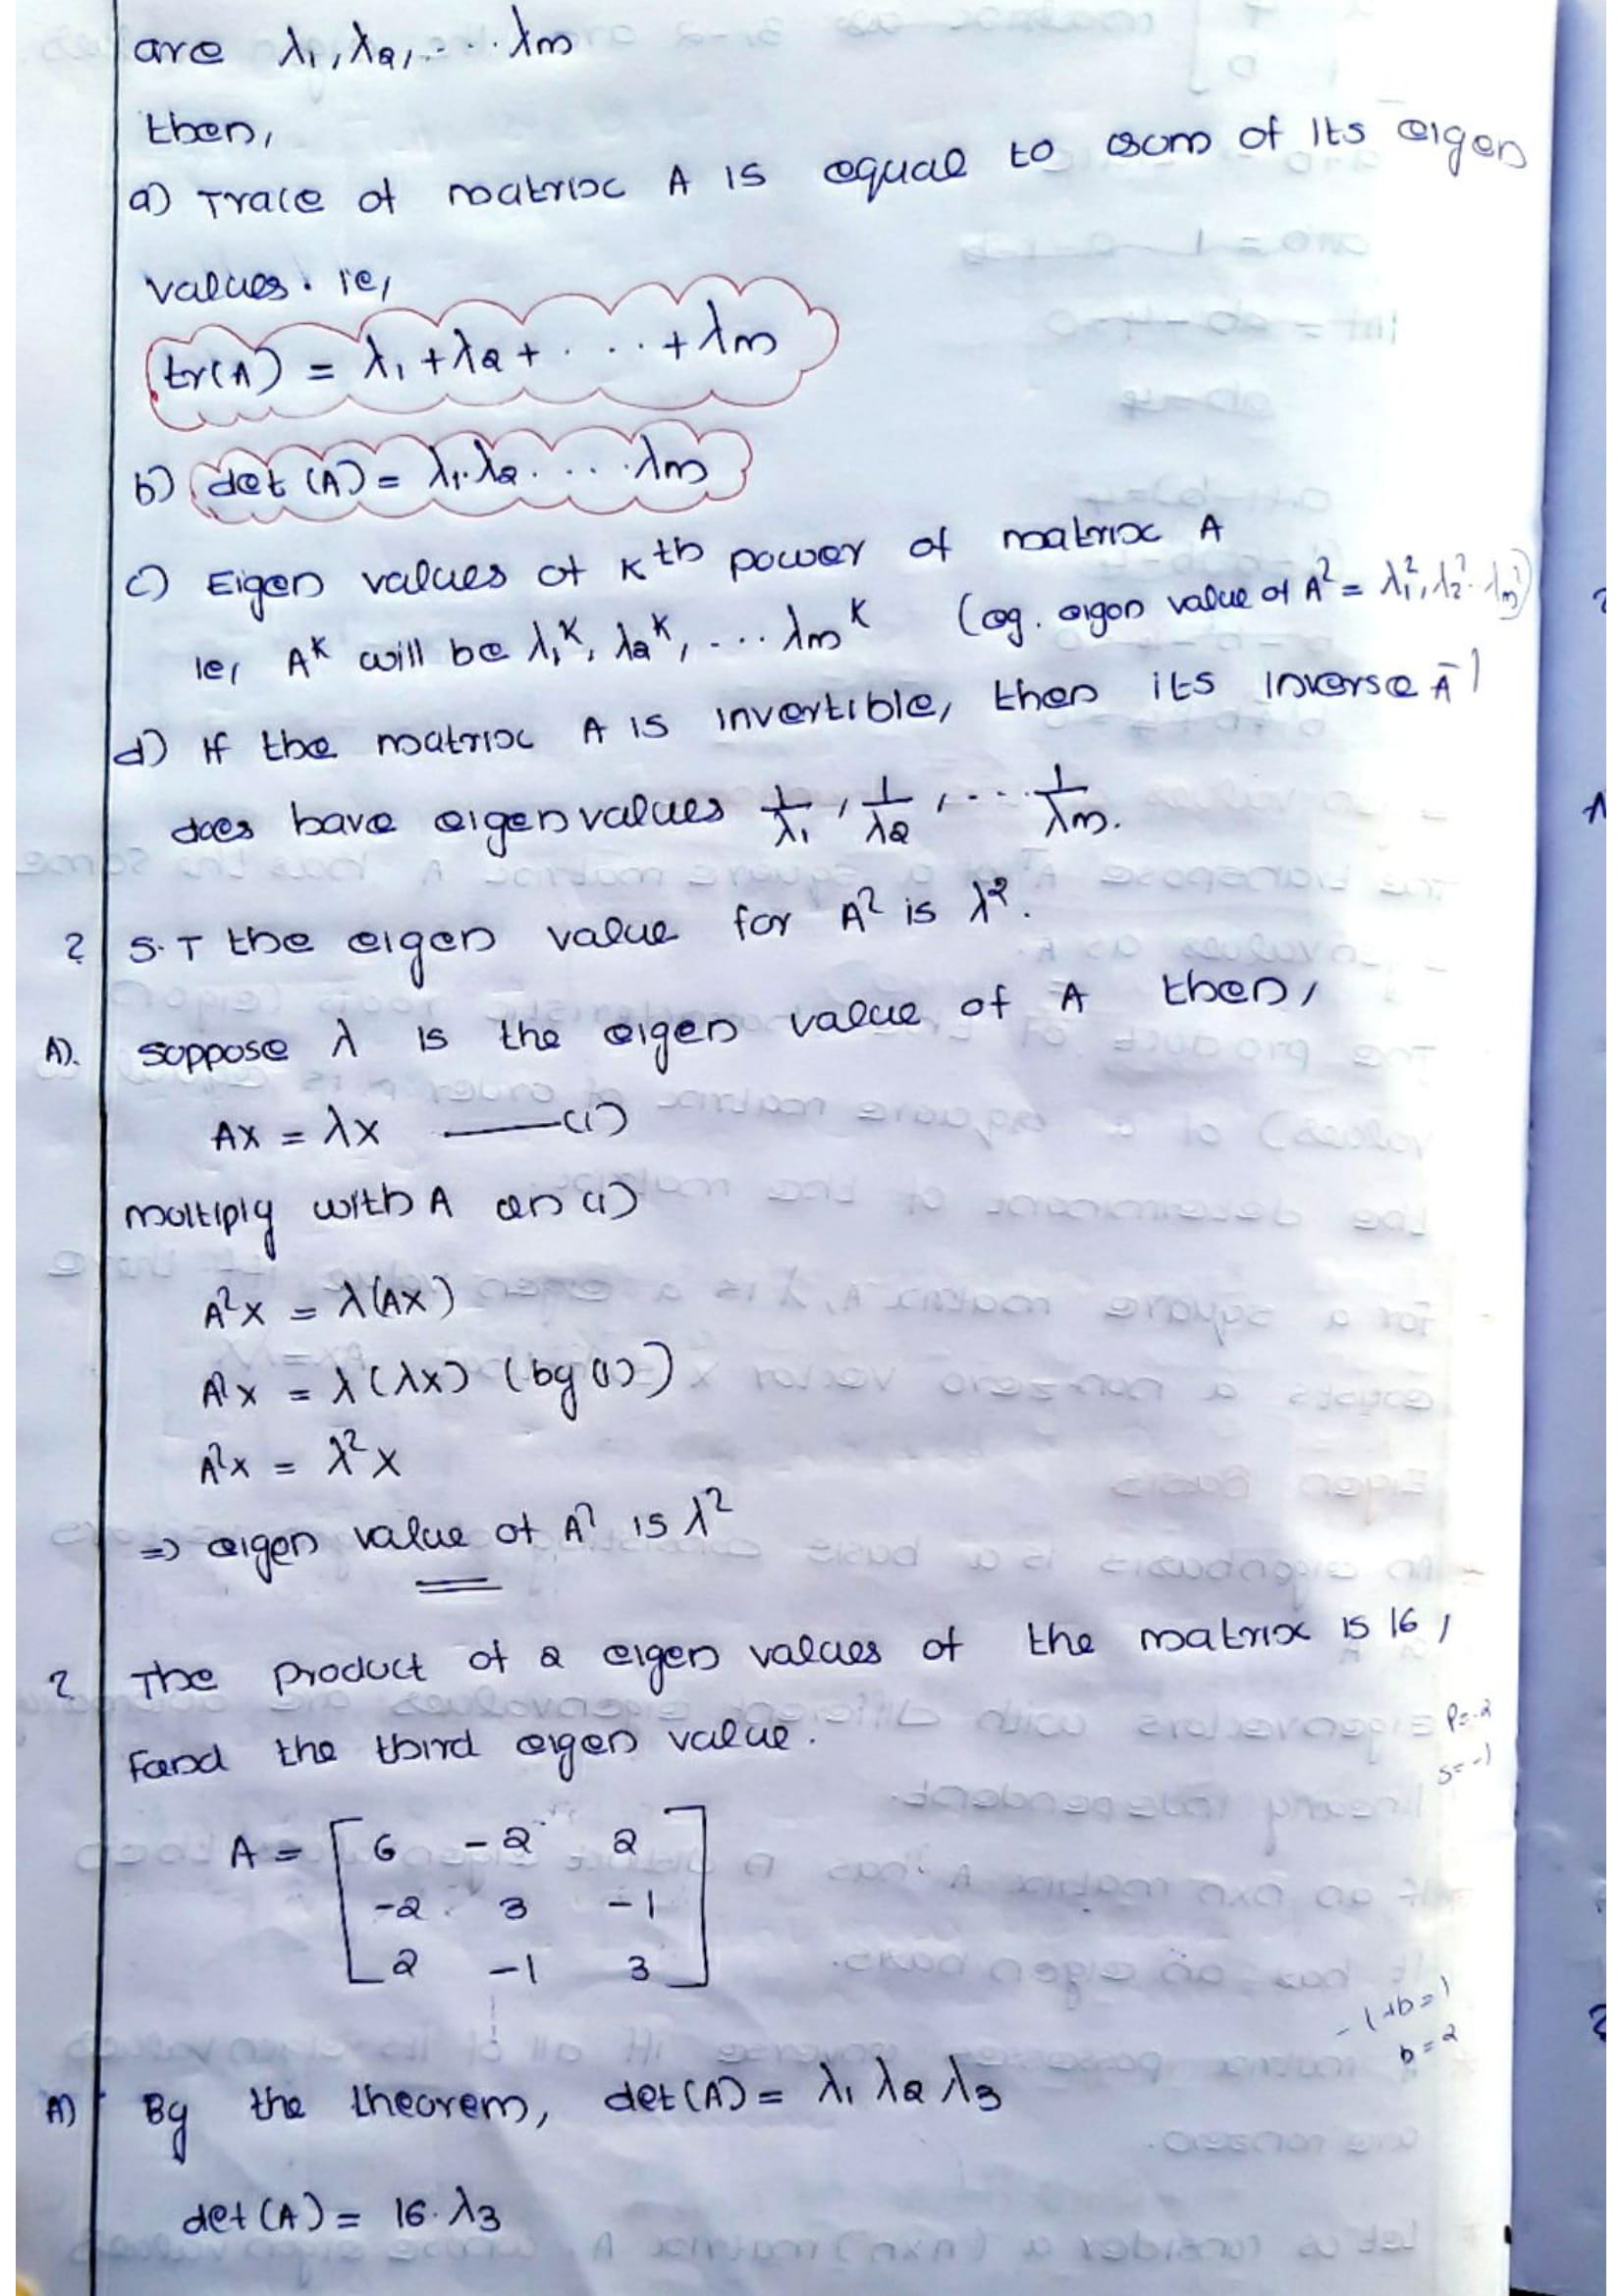 are λ₁, λ₂, ... λn
then,
a) Trace of matrix A is equal to sum of Its eigen
values. ie,
tr(A) = λ₁ + λ₂ + . . . + λn
b) det (A) = λ₁.λ₂. ... .λn
c) Eigen values of Kth power of matrix A
ie, A^K will be λ₁^K, λ₂^K, ... λn^K (eg. eigen value of A² = λ₁², λ₂² .. λn²)
d) If the matrix A is invertible, then its inverse A⁻¹
does have eigenvalues 1/λ₁, 1/λ₂, ... 1/λn.
? S.T the eigen value for A² is λ².
A). Suppose λ is the eigen value of A then,
AX = λX ——(1)
multiply with A on (1)
A²X = λ(AX)
A²X = λ(λX) (by (1))
A²X = λ²X
⇒ eigen value of A² is λ²
? The product of 2 eigen values of the matrix is 16,
Find the third eigen value.
P=-2
S=-1
A = [ 6 -2 2
-2 3 -1
2 -1 3 ]
-1+b=1
b=2
A) By the theorem, det(A) = λ₁ λ₂ λ₃
det(A) = 16. λ₃